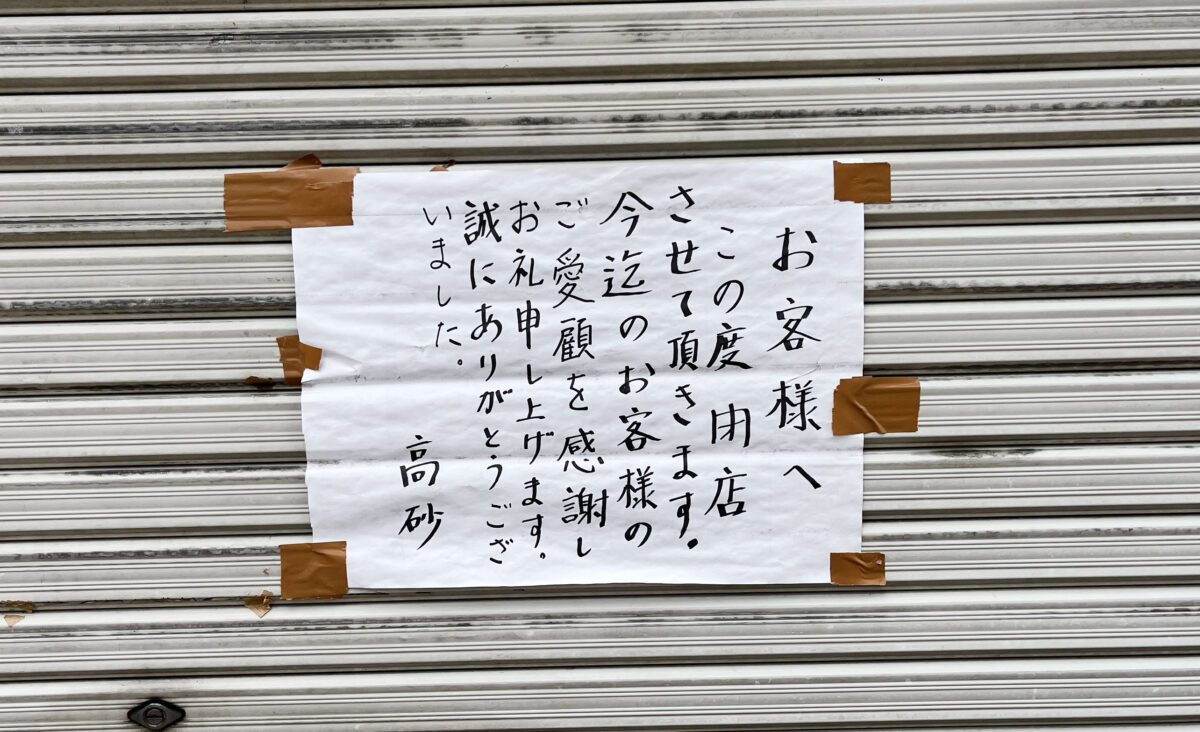 お客様へ
この度 閉店
させて頂きます.
今迄のお客様の
ご愛顧を感謝し
お礼申し上げます。
誠にありがとうござ
いました。
高砂